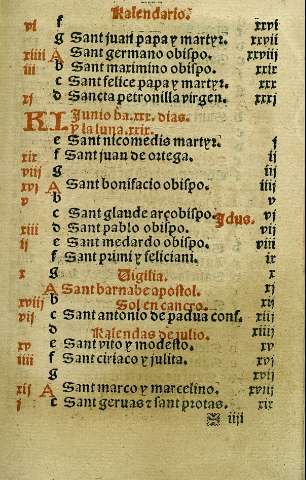 Kalendario.
vj f xxvj
g Sant juan papa y martyr. xxvij
xiiij A Sant germano obispo. xxviij
iij b Sant maximino obispo. xxix
c Sant felice papa y martyr. xxx
xj d Sancta petronilla virgen. xxxj
KL Junio ha .xxx. dias.
y la luna .xxix.
e Sant nicomedis martyr. j
xix f Sant juan de ortega. ij
viij g iij
xvj A Sant bonifacio obispo. iiij
v b v
c Sant glaude arçobispo. Idus. vj
xiij d Sant pablo obispo. vij
ij e Sant medardo obispo. viij
f Sant primi y feliciani. ix
x g Vigilia. x
A Sant barnabe apostol. xj
xviij b Sol en cancro. xij
vij c Sant antonio de padua conf. xiij
d Kalendas de julio. xiiij
xv e Sant vito y modesto. xv
iiij f Sant ciriaco y julita. xvj
g xvij
xij A Sant marco y marcelino. xviij
j c Sant geruas ⁊ sant protas. xix
iiij